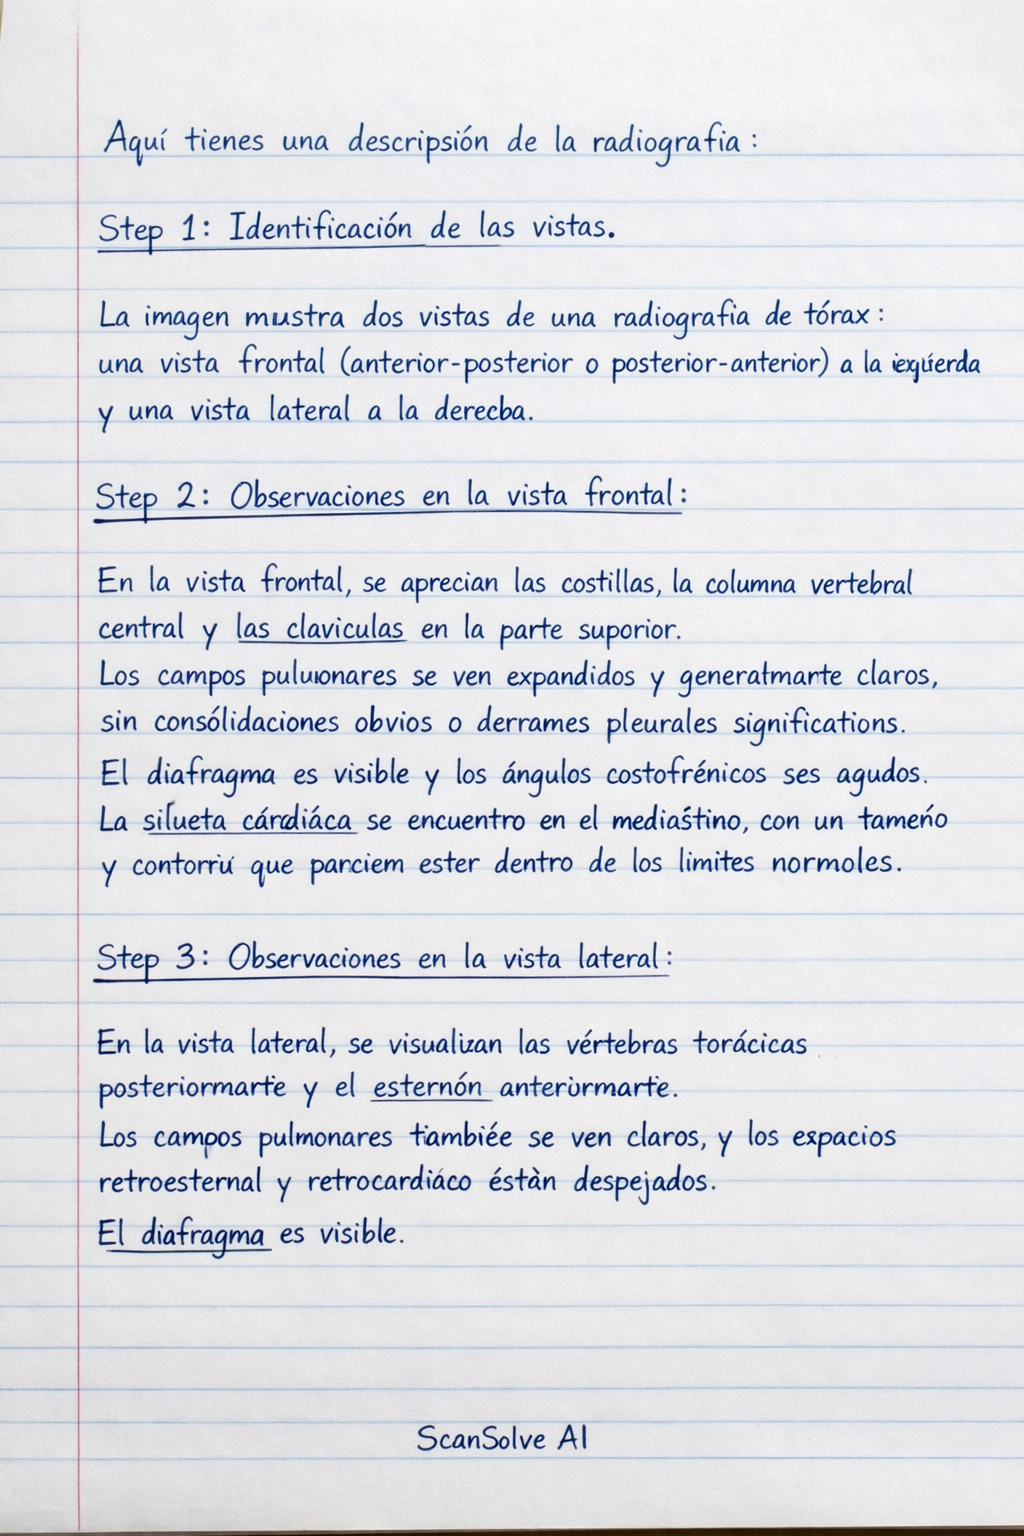 Aquí tienes una descripsión de la radiografia:
Step 1: Identificación de las vistas.
La imagen mustra dos vistas de una radiografia de tórax:
una vista frontal (anterior-posterior o posterior-anterior) a la
y una vista lateral a la derecba.
Step 2: Observaciones en la vista frontal:
En la vista frontal, se aprecian las costillas, la columna vertebral
central y las claviculas en la parte superior.
Los campos puluionares se ven expandidos y generatmante claros,
sin consólidaciones obvios o derrames pleurales significations.
El diafragma es visible y los ángulos costofrénicos ses agudos.
La silueta cárdiáca se encuentro en el mediaśtino, con un tameńo
y que parciem ester dentro de los limites normoles.
Step 3: Observaciones en la vista lateral:
En la vista lateral, se visualizan las vértebras torácicas
posteriormarte y el esternón
Los campos pulmonares se ven claros, y los espacios
retroesternal y retrocardiáco éstàn despejados.
El diafragma es visible.
ScanSolve AI